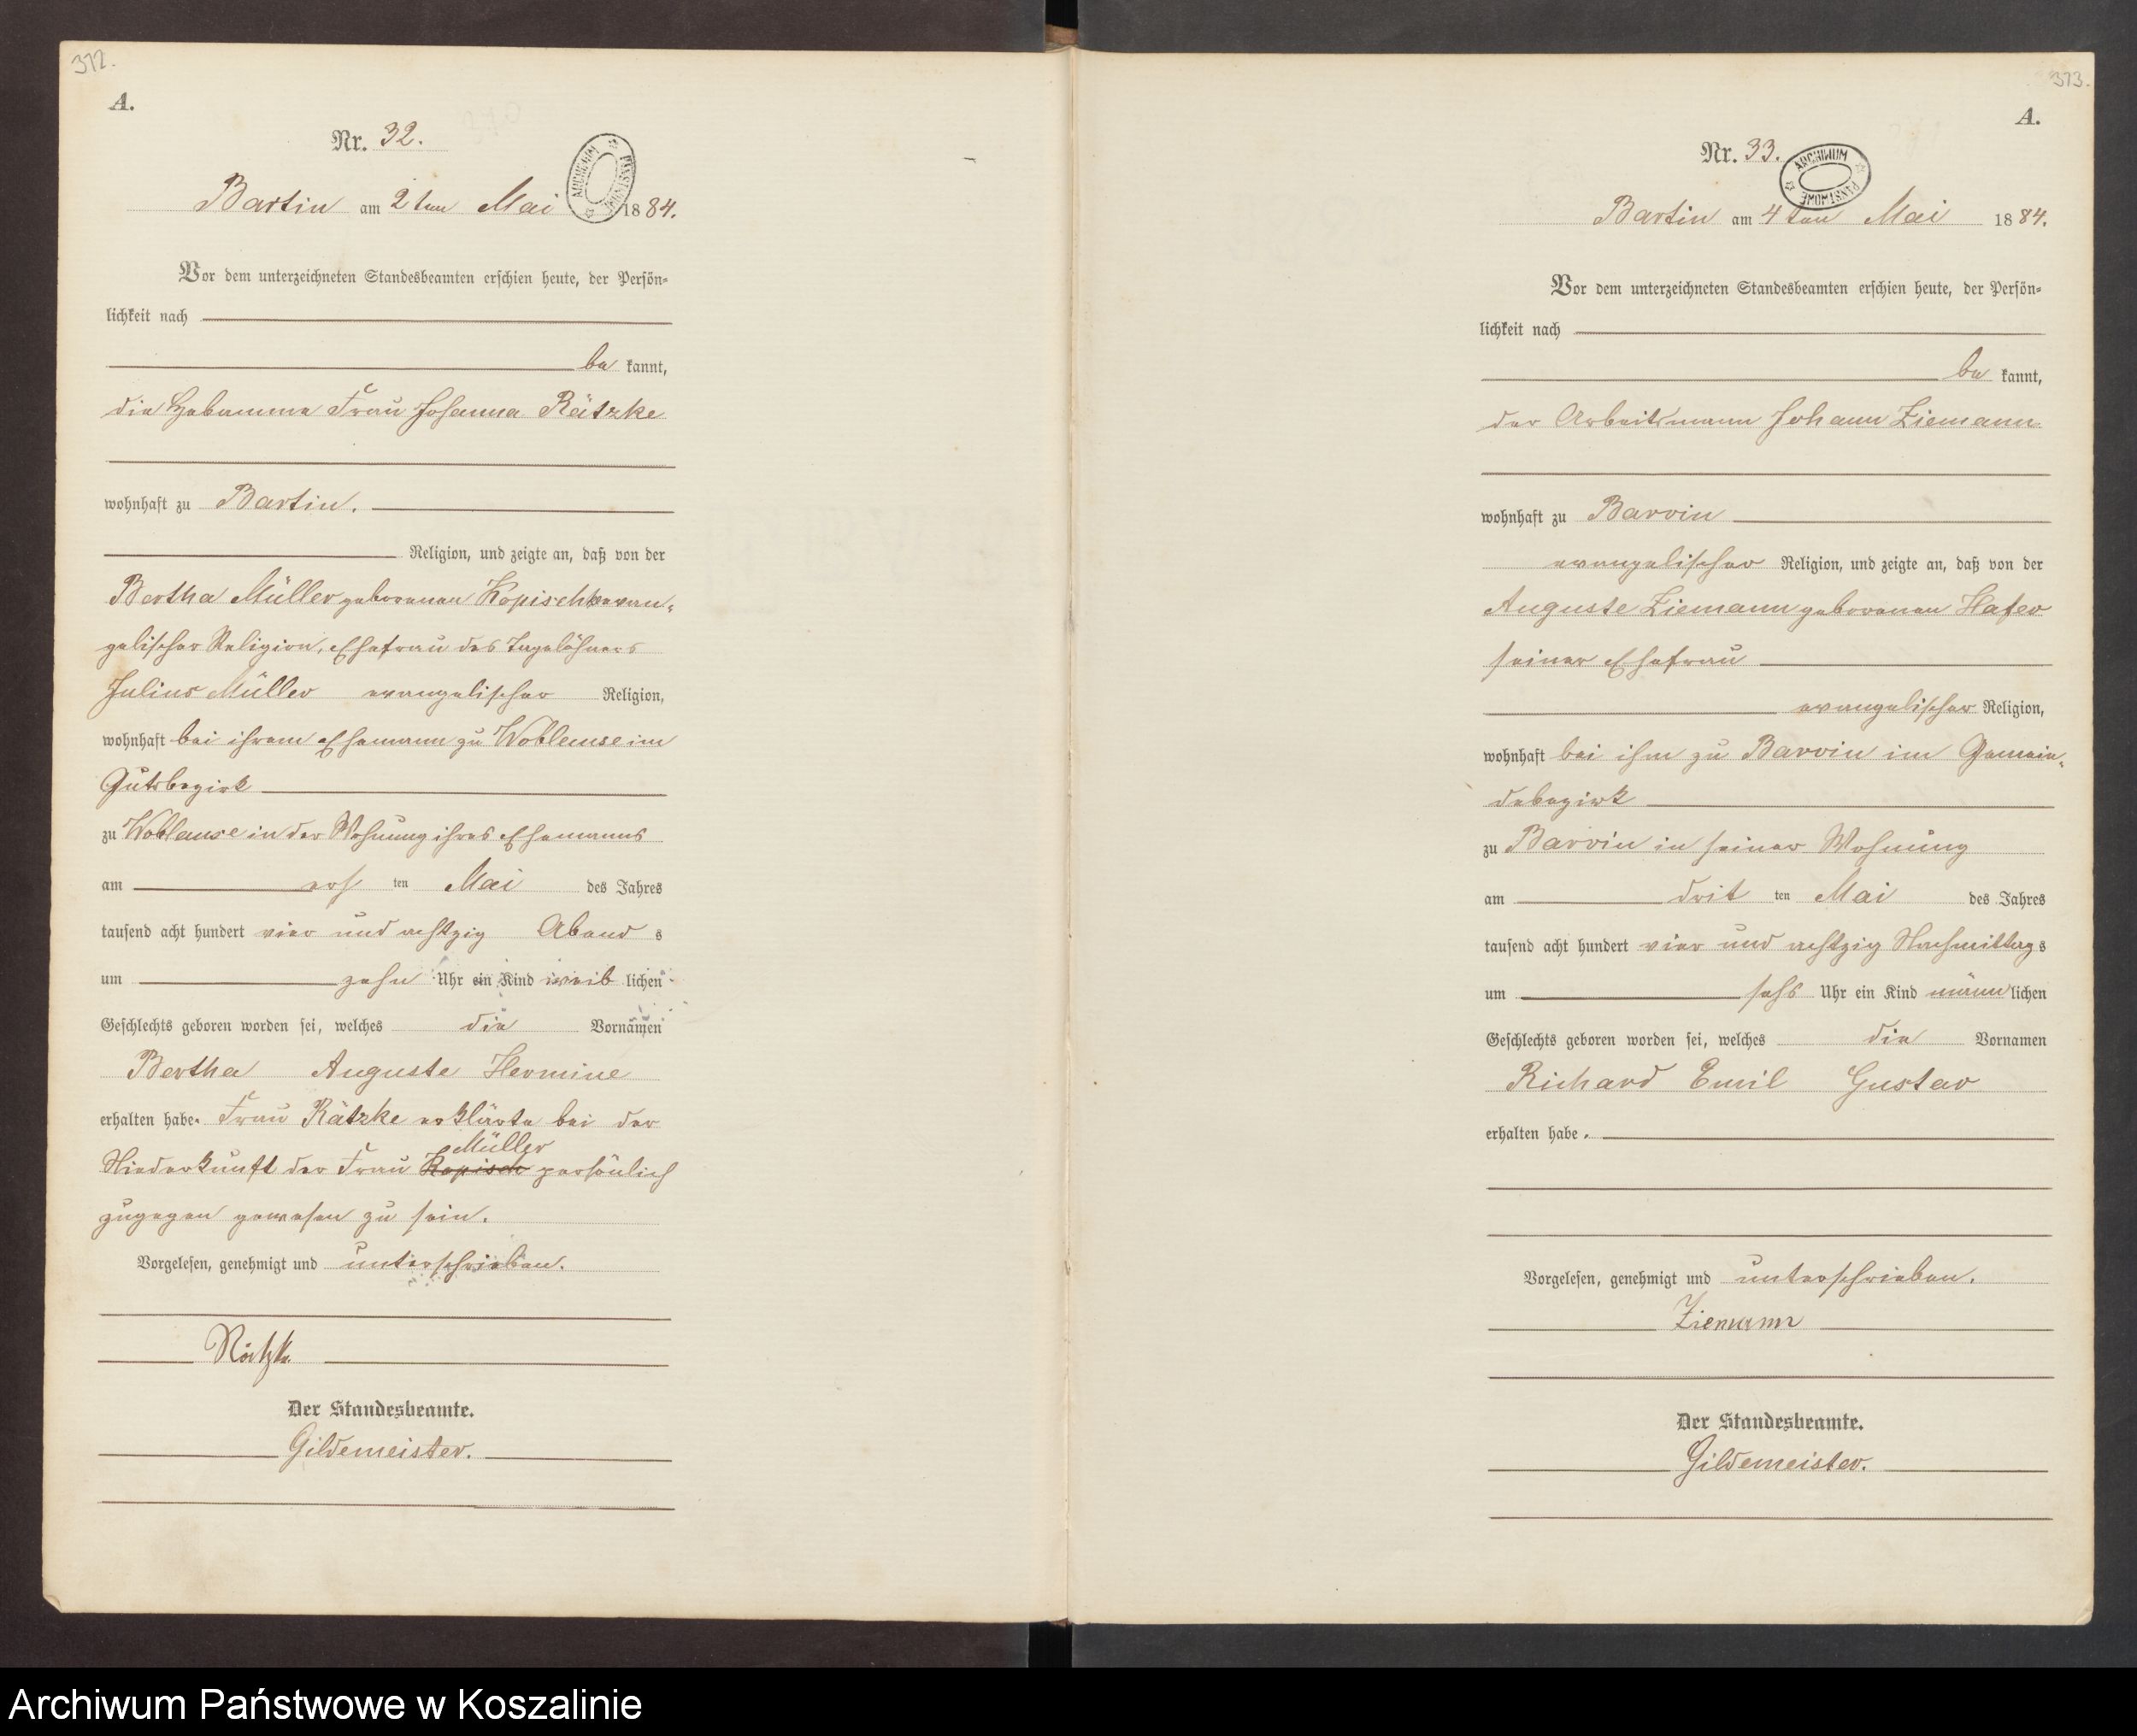 312.
A.
Nr. 32.
ARCHIWUM PAŃSTWOWE
Bartin am 2ten Mai 1884.
Vor dem unterzeichneten Standesbeamten erschien heute, der Persön-
lichkeit nach
be kannt,
die Hebamme Frau Johanna Rätzke
wohnhaft zu Bartin.
Religion, und zeigte an, daß von der
Bertha Müller geborenen Kopischke evan-
gelischer Religion, Ehefrau des Tagelöhners
Julius Müller evangelischer Religion,
wohnhaft bei ihrem Ehemann zu Woblanse im
Gutsbezirk
zu Woblanse in der Wohnung ihres Ehemanns
am ers ten Mai des Jahres
tausend acht hundert vier und achtzig Abend s
um zehn Uhr ein Kind weib lichen
Geschlechts geboren worden sei, welches die Vornamen
Bertha Auguste Hermine
erhalten habe. Frau Rätzke erklärte bei der
Müller
Niederkunft der Frau Kopisch persönlich
zugegen gewesen zu sein.
Vorgelesen, genehmigt und unterschrieben.
Rätzke
Der Standesbeamte.
Gildemeister.
313.
A.
Nr. 33.
ARCHIWUM PAŃSTWOWE
Bartin am 4ten Mai 1884.
Vor dem unterzeichneten Standesbeamten erschien heute, der Persön-
lichkeit nach
be kannt,
der Arbeitsmann Johann Ziemann
wohnhaft zu Barvin
evangelischer Religion, und zeigte an, daß von der
Auguste Ziemann geborenen Hafer
seiner Ehefrau
evangelischer Religion,
wohnhaft bei ihm zu Barvin im Gemein-
debezirk
zu Barvin in seiner Wohnung
am drit ten Mai des Jahres
tausend acht hundert vier und achtzig Nachmittag s
um sechs Uhr ein Kind männ lichen
Geschlechts geboren worden sei, welches die Vornamen
Richard Emil Gustav
erhalten habe.
Vorgelesen, genehmigt und unterschrieben.
Ziemann
Der Standesbeamte.
Gildemeister.
Archiwum Państwowe w Koszalinie